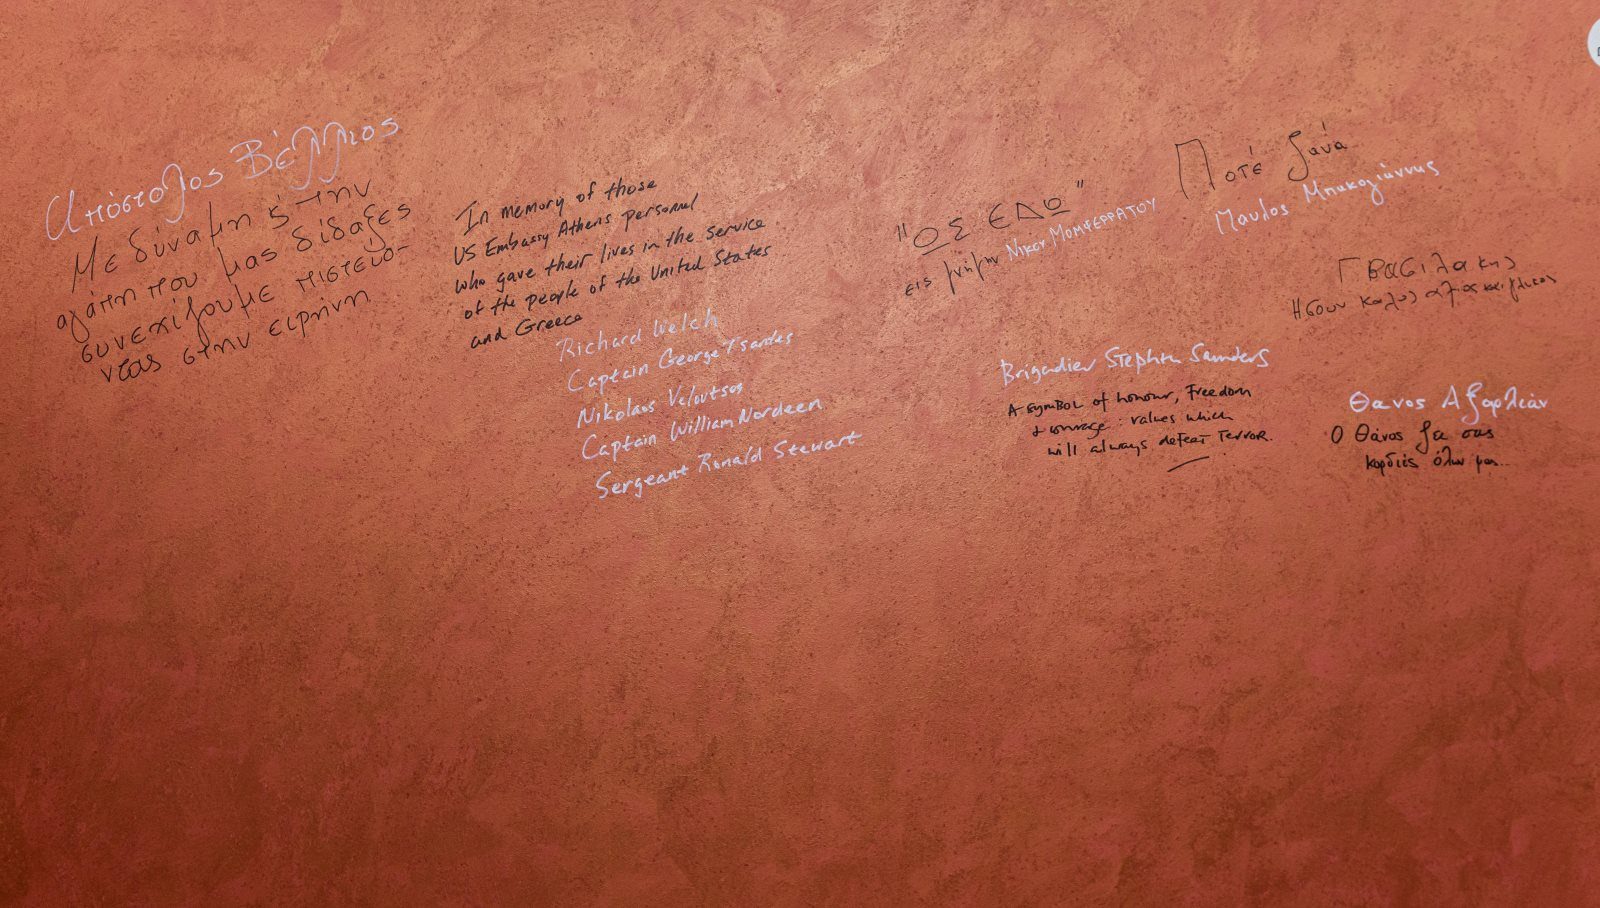 Απόστολος Βέλλιος
Με δύναμη & την
αγάπη που μας δίδαξες
συνεχίζουμε πιστεύο-
ντας στην ειρήνη
In memory of those
US Embassy Athens personnel
who gave their lives in the service
of the people of the United States
and Greece
Richard Welch
Captain George Tsantes
Nikolaos Veloutsos
Captain William Nordeen
Sergeant Ronald Stewart
"ΩΣ ΕΔΩ"
εις μνήμην ΝΙΚΟΥ ΜΟΜΦΕΡΡΑΤΟΥ
Ποτέ ξανά
Παυλος Μπακογιάννης
Γ Βασιλακης
Ησουν καλος αξιος και γλυκος
Brigadier Stephen Saunders
A symbol of honour, Freedom
& courage: values which
will always defeat Terror.
Θανος Αξαρλιάν
Ο Θάνος ζει στις
καρδιές όλων μας..